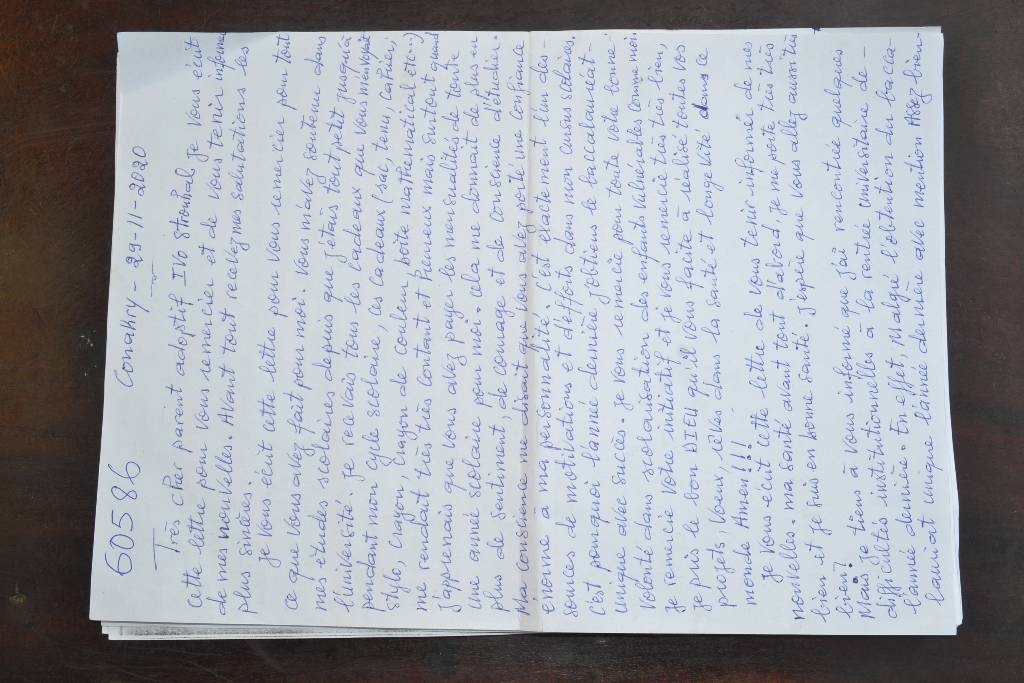 60586 Conakry - 29-11-2020
Très cher parent adoptif IVO Strouhal je vous écrit
cette lettre pour vous remercier et de vous tenir informer
de mes nouvelles. Avant tout recevez mes salutations les
plus sincères.
je vous écrit cette lettre pour vous remercier pour tout
ce que vous avez fait pour moi. Vous m'avez soutenu dans
mes études scolaires depuis que j'étais tout petit jusqu'à
l'université. Je recevais tous les cadeaux que vous m'envoyait
pendant mon cycle scolaire, ces cadeaux (sac, tenu, cahier,
stylo, crayon, crayon de couleur, boîte mathématical etc...)
me rendait très très contant et heureux mais surtout quand
j'apprenais que vous avez payer les mensualités de toute
une année scolaire pour moi. cela me donnait de plus en
plus de sentiment, de courage et de conscience d'étudier.
Ma conscience me disait que vous avez porté une confiance
enorme à ma personnalité, c'est exatement l'un des
sources de motivations et d'efforts dans mon cursus scolaires.
c'est pourquoi l'année dernière j'obtiens le baccalauréat
unique avec succès. je vous remercie pour toute votre bonne
volonté dans scolarisation des enfants vulnerables comme moi.
Je remercie votre initiatif et je vous remercie très très bien,
je pris le bon DIEU qu'il vous faite à réalisé toutes vos
projets, voeux, rêves dans la santé et longevité dans ce
monde Amen!!!
Je vous ecrit cette lettre de vous tenir informé de mes
nouvelles. ma santé avant tout d'abord, je me porte très très
bien et je suis en bonne santé. j'espère que vous allez aussi très
bien?
Mais je tiens à vous informé que j'ai rencontrée quelques
difficultés institutionnelles à la rentrée universitaire de
l'année dernière. En effet, Malgré l'obtention du bacca-
lauréat unique l'année dernière avec mention Assez bien.